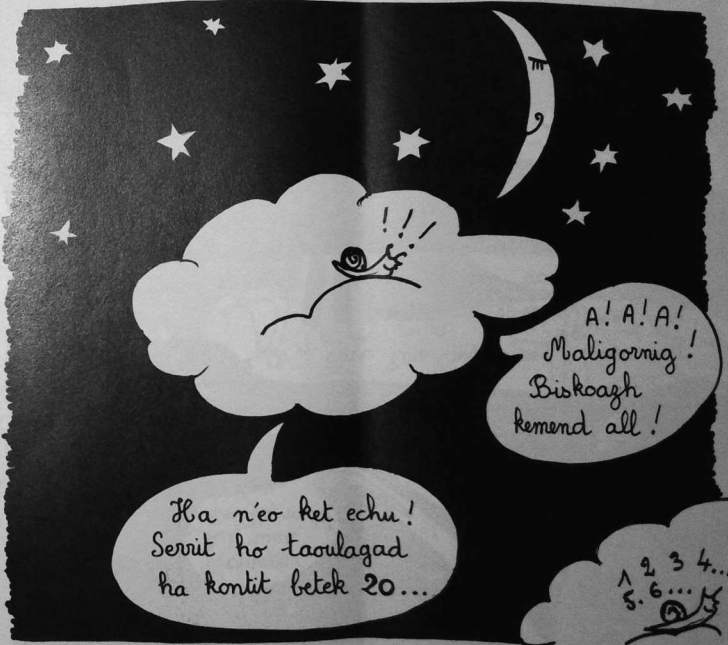 !!!
A! A! A!
Maligornig !
Biskoazh
kemend all !
Ha n'eo ket echu !
Serrit ho taoulagad
ha kontit betek 20...
1 2 3 4...
5. 6...